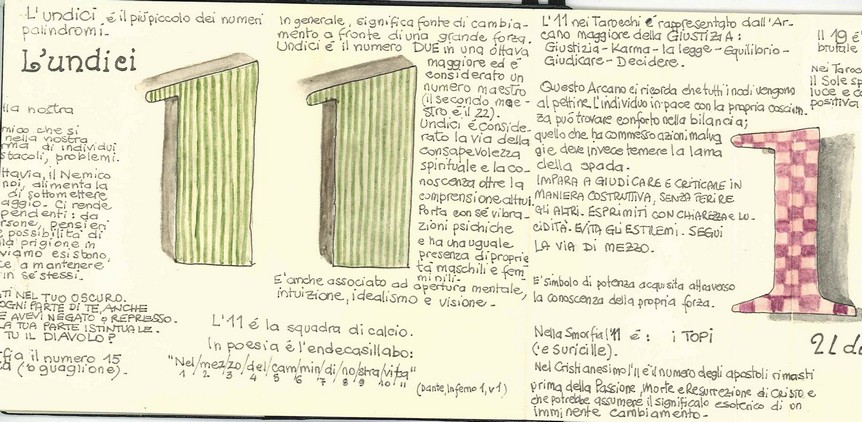 L'undici, é il più piccolo dei numeri
palindromi.
L'undici
lla nostra
mico che si
nella nostra
rma di individui
stacoli, problemi.
ttavia, il Nemico
noi, alimenta la
di sottomettere
aggio. Ci rende
pendenti: da
rsone, pensieri
e possibilità di
lla prigione in
viamo esistono,
ce a mantenere
in se stessi.
TI NEL TUO OSCURO.
OGNI PARTE DI TE, ANCHE
E AVEVI NEGATO O REPRESSO.
LA TUA PARTE ISTINTUALE.
TU IL DIAVOLO?
fia il numero 15
('o guaglione).
11
In generale, significa fonte di cambia-
mento a fronte di una grande forza.
Undici é il numero DUE in una ottava
maggiore ed é
considerato un
numero maestro
(il secondo mae-
stro é il 22).
Undici é conside-
rato la via della
consapevolezza
spirituale e la co-
noscenza oltre la
comprensione altrui.
Porta con sé vibra-
zioni psichiche
e ha una uguale
presenza di proprie
tà maschili e fem
minili.
E' anche associato ad apertura mentale,
intuizione, idealismo e visione.
L'11 é la squadra di calcio.
In poesia é l'endecasillabo:
"Nel/mez/zo/del/cam/min/di/no/stra/vita"
1 2 3 4 5 6 7 8 9 10 11
(Dante, Inferno 1, v1)
L'11 nei Tarocchi é rappresentato dall'Ar-
cano maggiore della GIUSTIZIA:
Giustizia - Karma - la legge - Equilibrio -
Giudicare - Decidere.
Questo Arcano ci ricorda che tutti i nodi vengono
al pettine. L'individuo in pace con la propria coscien-
za può trovare conforto nella bilancia;
quello che ha commesso azioni malva
gie deve invece temere la lama
della spada.
IMPARA A GIUDICARE E CRITICARE IN
MANIERA COSTRUTTIVA, SENZA FERIRE
GLI ALTRI. ESPRIMITI CON CHIAREZZA E LU-
CIDITÀ. EVITA GLI ESTREMI. SEGUI
LA VIA DI MEZZO.
E' simbolo di potenza acquisita attraverso
la conoscenza della propria forza.
Nella Smorfia l'11 é: i TOPI
('e suricille).
Nel Cristianesimo l'11 é il numero degli apostoli rimasti
prima della Passione, Morte e Resurrezione di CRISTO e
che potrebbe assumere il significato esoterico di un
imminente cambiamento.
Il 19 é
brutale
Nei Taroc
il Sole sp
luce e c
positiva
1